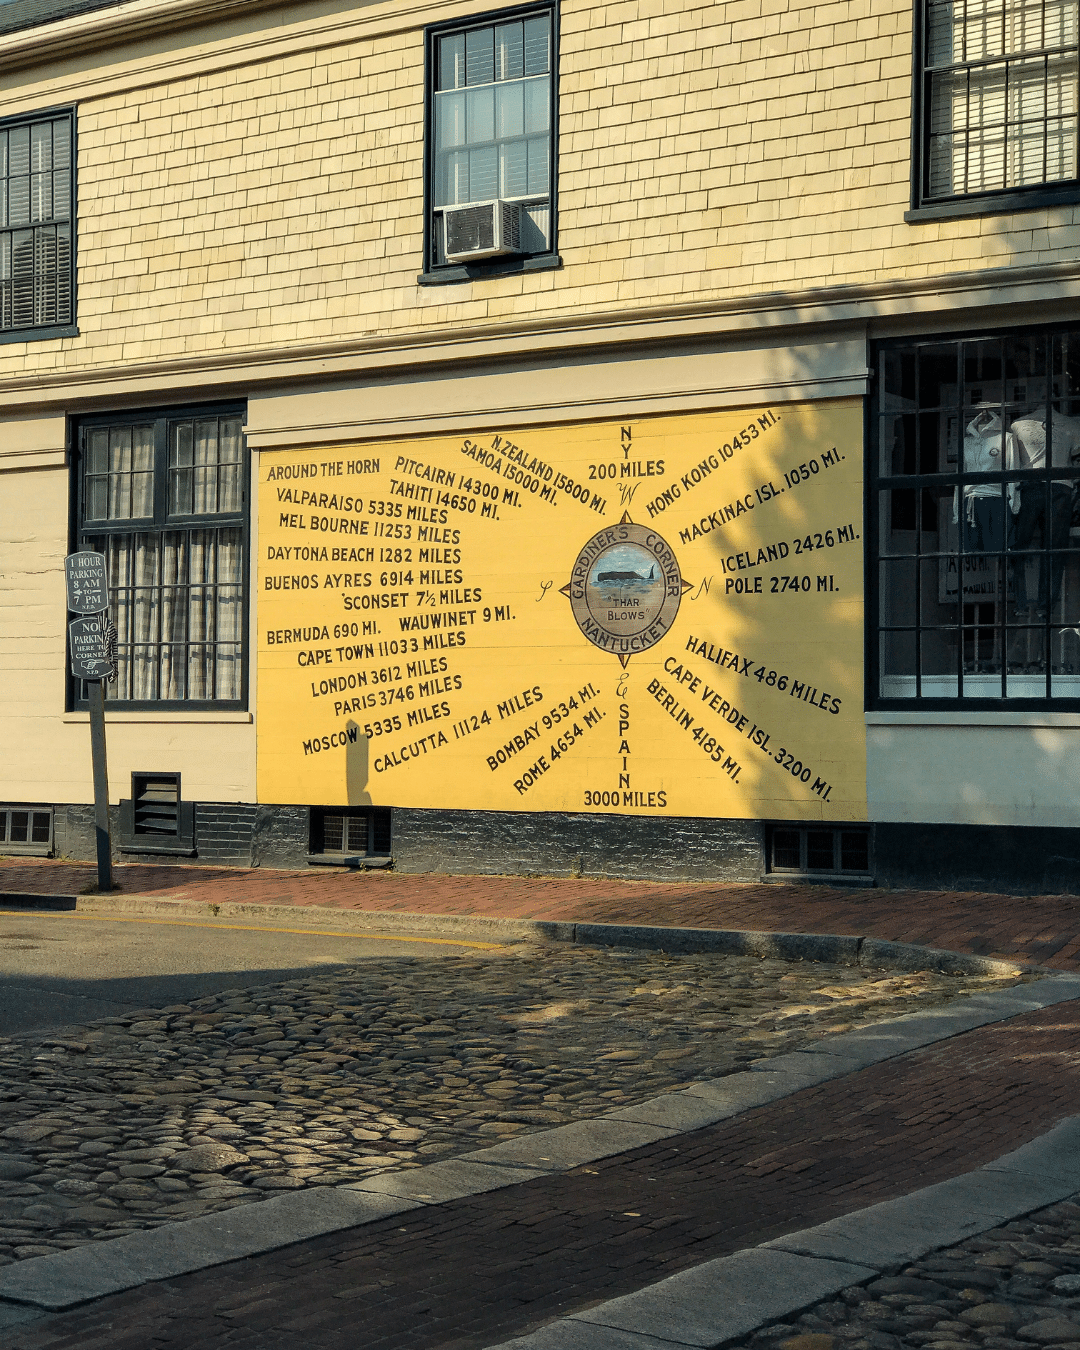 N
Y
200 MILES
W
AROUND THE HORN
PITCAIRN 14300 MI.
TAHITI 14650 MI.
SAMOA 15000 MI.
N.ZEALAND 15800 MI.
HONG KONG 10453 MI.
MACKINAC ISL. 1050 MI.
ICELAND 2426 MI.
POLE 2740 MI.
VALPARAISO 5335 MILES
MELBOURNE 11253 MILES
DAYTONA BEACH 1282 MILES
BUENOS AYRES 6914 MILES
'SCONSET 7½ MILES
BERMUDA 690 MI. WAUWINET 9 MI.
CAPE TOWN 11033 MILES
LONDON 3612 MILES
PARIS 3746 MILES
MOSCOW 5335 MILES
CALCUTTA 11124 MILES
BOMBAY 9534 MI.
ROME 4654 MI.
S
GARDINER'S CORNER
"THAR
BLOWS"
NANTUCKET
N
E
SPAIN
3000 MILES
HALIFAX 486 MILES
CAPE VERDE ISL. 3200 MI.
BERLIN 4185 MI.
1 HOUR
PARKING
8 AM
TO
7 PM
N.P.D.
NO
PARKING
HERE TO
CORNER
N.P.D.